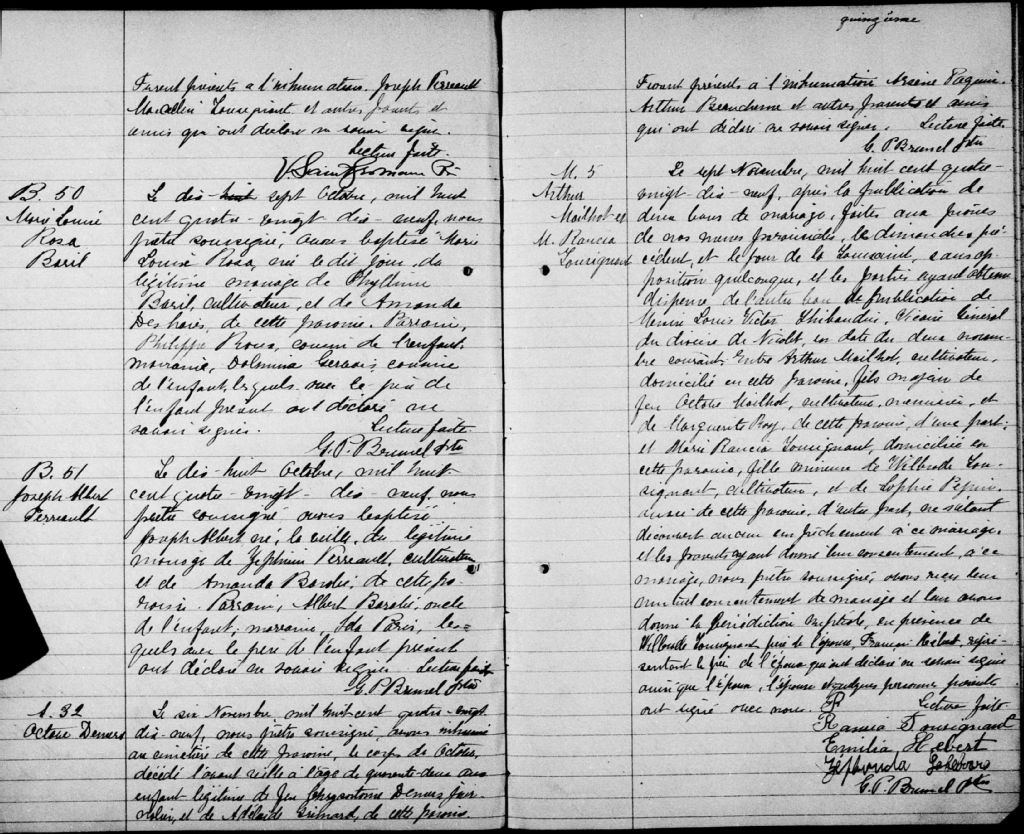 Furent présents à l'inhumation Joseph Perreault
Marcellin Tousignant et autres parents et
amis qui ont déclaré ne savoir signer.
Lecture faite
B. 50
Marie Louise
Rosa
Baril
Le dix-huit sept Octobre, mil huit
cent quatre-vingt-dix-neuf, nous
prêtre soussigné, avons baptisé Marie
Louise Rosa, née le dit jour, du
légitime mariage de
Baril, cultivateur, et de Amanda
Deshaies, de cette paroisse. Parrain,
Philippe Roux, cousin de l'enfant,
marraine, Dolmina Gervais, cousine
de l'enfant, lesquels avec le père de
l'enfant présent ont déclaré ne
savoir signer. Lecture faite
G. P. Brunel Ptre
B. 51
Joseph Albert
Perreault
Le dix-huit Octobre, mil huit
cent quatre-vingt-dix-neuf, nous
prêtre soussigné avons baptisé
Joseph Albert né, la veille, du légitime
mariage de Zéphirin Perreault, cultivateur
et de Amanda Barolé, de cette pa-
roisse. Parrain, Albert Barolé, oncle
de l'enfant, marraine, Ida Paris, les-
quels avec le père de l'enfant présent
ont déclaré ne savoir signer. Lecture faite
G. P. Brunel Ptre
S. 32
Octave Demers
Le six Novembre, mil huit cent quatre-vingt
dix-neuf, nous prêtre soussigné, avons inhumé
au cimetière de cette paroisse, le corps de Octave,
décédé l'avant veille à l'âge de quarante-deux ans
enfant légitime de feu Chrysostome Demers jour
nalier, et de Adélaïde Grimard, de cette paroisse
quinzième
Furent présents à l'inhumation Arsène Paquin,
Arthur Beauchesne et autres parents et amis
qui ont déclaré ne savoir signer. Lecture faite
G. P. Brunel Ptre
M. 5
Arthur
Mailhot et
M. Rancia
Tousignant
Le sept Novembre, mil huit cent quatre-
vingt-dix-neuf, après la publication de
deux bans de mariage, faites aux prônes
de nos messes paroissiales, le dimanche pré
cédent, et le jour de la Toussaint, sans op-
position quelconque, et les parties ayant obtenu
dispense de l'autre ban de publication de
Messire Louis Victor Thibaudier, Vicaire Général
du diocèse de Nicolet, en date du deux novem-
bre courant, Entre Arthur Mailhot, cultivateur,
domicilié en cette paroisse, fils majeur de
feu Octave Mailhot, cultivateur, menuisier, et
de Marguerite Roy, de cette paroisse, d'une part;
et Marie Rancia Tousignant, domiciliée en
cette paroisse, fille mineure de Wilbrode Tou-
signant, cultivateur, et de Sophie Pepin
aussi de cette paroisse, d'autre part, ne s'étant
découvert aucun empêchement à ce mariage,
et les parents ayant donné leur consentement, à ce
mariage, nous prêtre soussigné, avons reçu leur
mutuel consentement de mariage et leur avons
donné la bénédiction nuptiale, en présence de
Wilbrode Tousignant père de l'épouse, François Mailhot, repré-
sentant le père de l'époux qui ont déclaré ne savoir signer
ainsi que l'époux, l'épouse et quelques personnes présentes
ont signé avec nous. Lecture faite
Rancia Tousignant
Emilia Hebert
G. P. Brunel Ptre